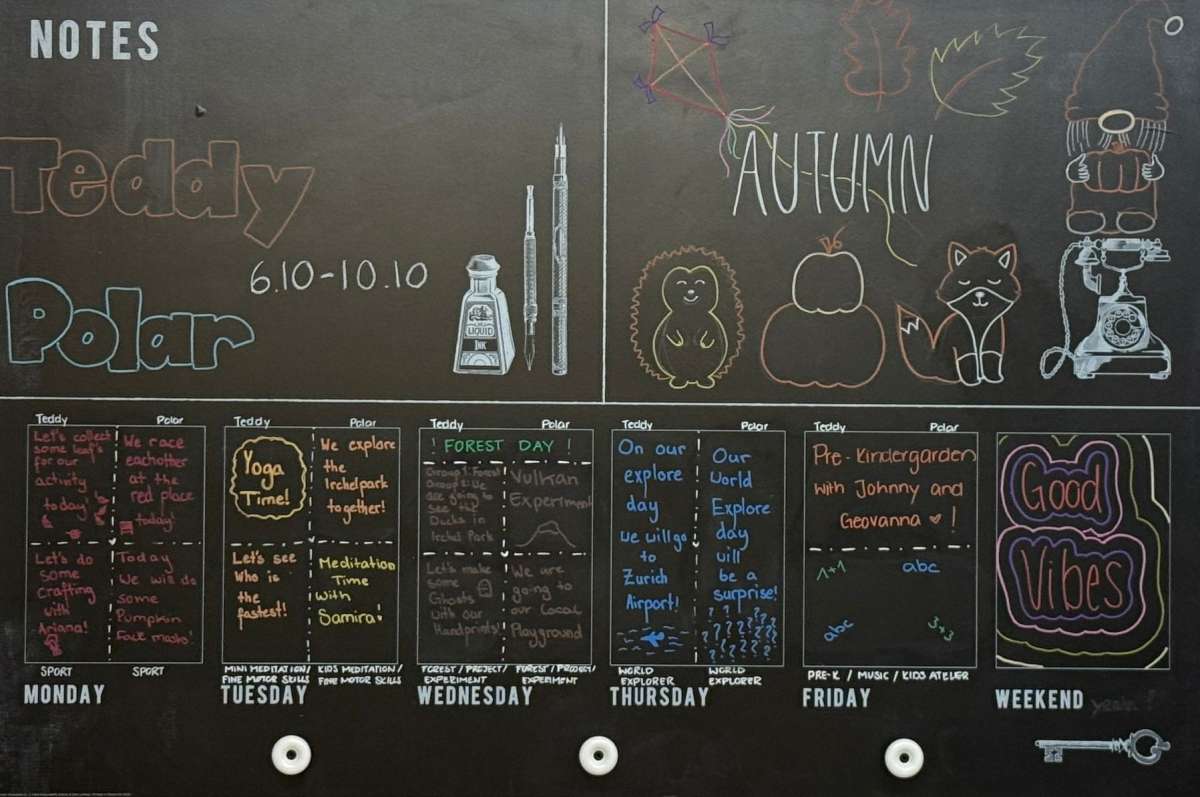 NOTES
Teddy
6.10-10.10
Polar
LIQUID
INK
AUTUMN
Teddy
Let's collect
some leaf's
for our
activity
today!
Let's do
some
crafting
with
Ariana!
SPORT
Polar
We race
eachother
at the
red place
today!
Today
we will do
some
Pumpkin
Face masks!
SPORT
MONDAY
Teddy
Yoga
Time!
Let's see
who is
the
fastest!
MINI MEDITATION/
FINE MOTOR SKILLS
Polar
We explore
the
Irchelpark
together!
Meditation
Time
with
Samira!
KIDS MEDITATION/
FINE MOTOR SKILLS
TUESDAY
Teddy
Polar
! FOREST DAY !
Group 1: Forest
Group 2: We
are going to
see the
Ducks in
Irchel Park
Let's make
some
Ghosts
with our
Handprints!
FOREST/PROJECT/
EXPERIMENT
Vulkan
Experiment
We are
going to
our Local
Playground
FOREST/PROJECT/
EXPERIMENT
WEDNESDAY
Teddy
On our
explore
day
we will go
to
Zurich
Airport!
WORLD
EXPLORER
Polar
Our
World
Explore
day
will
be a
surprise!
? ? ? ? ?
WORLD
EXPLORER
THURSDAY
Teddy
Polar
Pre-Kindergarden
with Johnny and
Geovanna ♥!
1+1
abc
abc
3+3
PRE-K / MUSIC / KIDS ATELIER
FRIDAY
Good
Vibes
WEEKEND yeah!